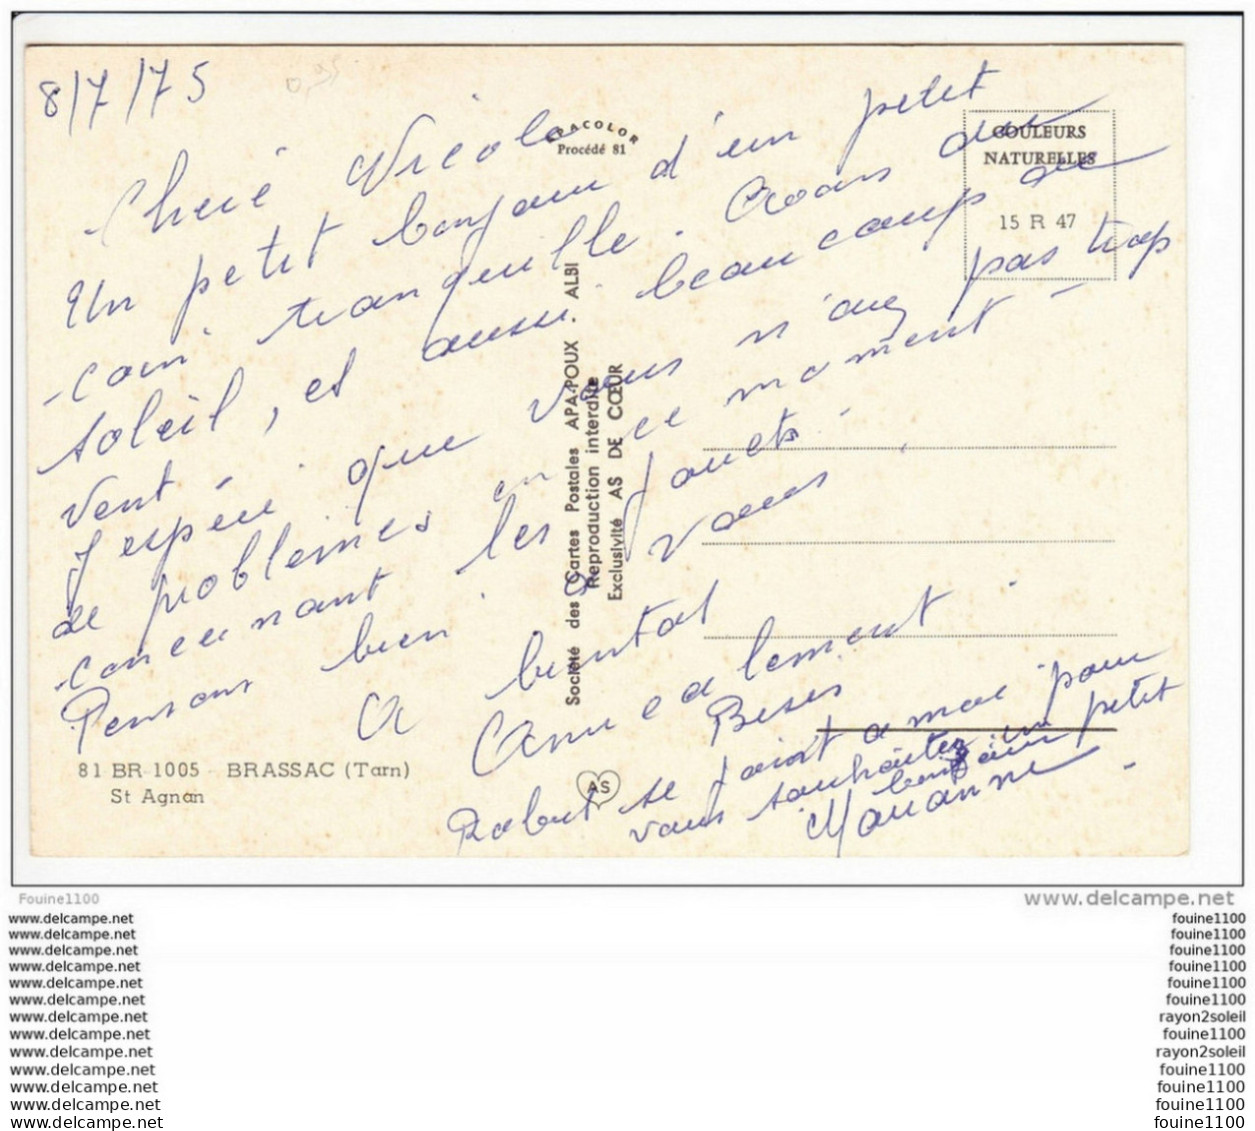 8/7/75
0,95
Cheré Nicole
Un petit bonjour d'un petit
coin tranquille. Avons du
soleil, et aussi beaucoup de
vent.
J'espère que vous n'avez pas trop
de problemes en ce moment
concernant les jouets.
Pensons bien a vous
A bientot
Amicalement.
Bises
Robert se joint a moi pour
vous souhaitez un petit
bonjour
Marianne
ADACOLOR
Procédé 81
COULEURS
NATURELLES
15 R 47
Société des Cartes Postales APA-POUX ALBI
Reproduction interdite
Exclusivité AS DE CŒUR
81 BR 1005 - BRASSAC (Tarn)
St Agnan
AS
Fouine1100
www.delcampe.net
www.delcampe.net
fouine1100
www.delcampe.net
fouine1100
www.delcampe.net
fouine1100
www.delcampe.net
fouine1100
www.delcampe.net
fouine1100
www.delcampe.net
fouine1100
www.delcampe.net
rayon2soleil
www.delcampe.net
fouine1100
www.delcampe.net
rayon2soleil
www.delcampe.net
fouine1100
www.delcampe.net
fouine1100
www.delcampe.net
fouine1100
www.delcampe.net
fouine1100